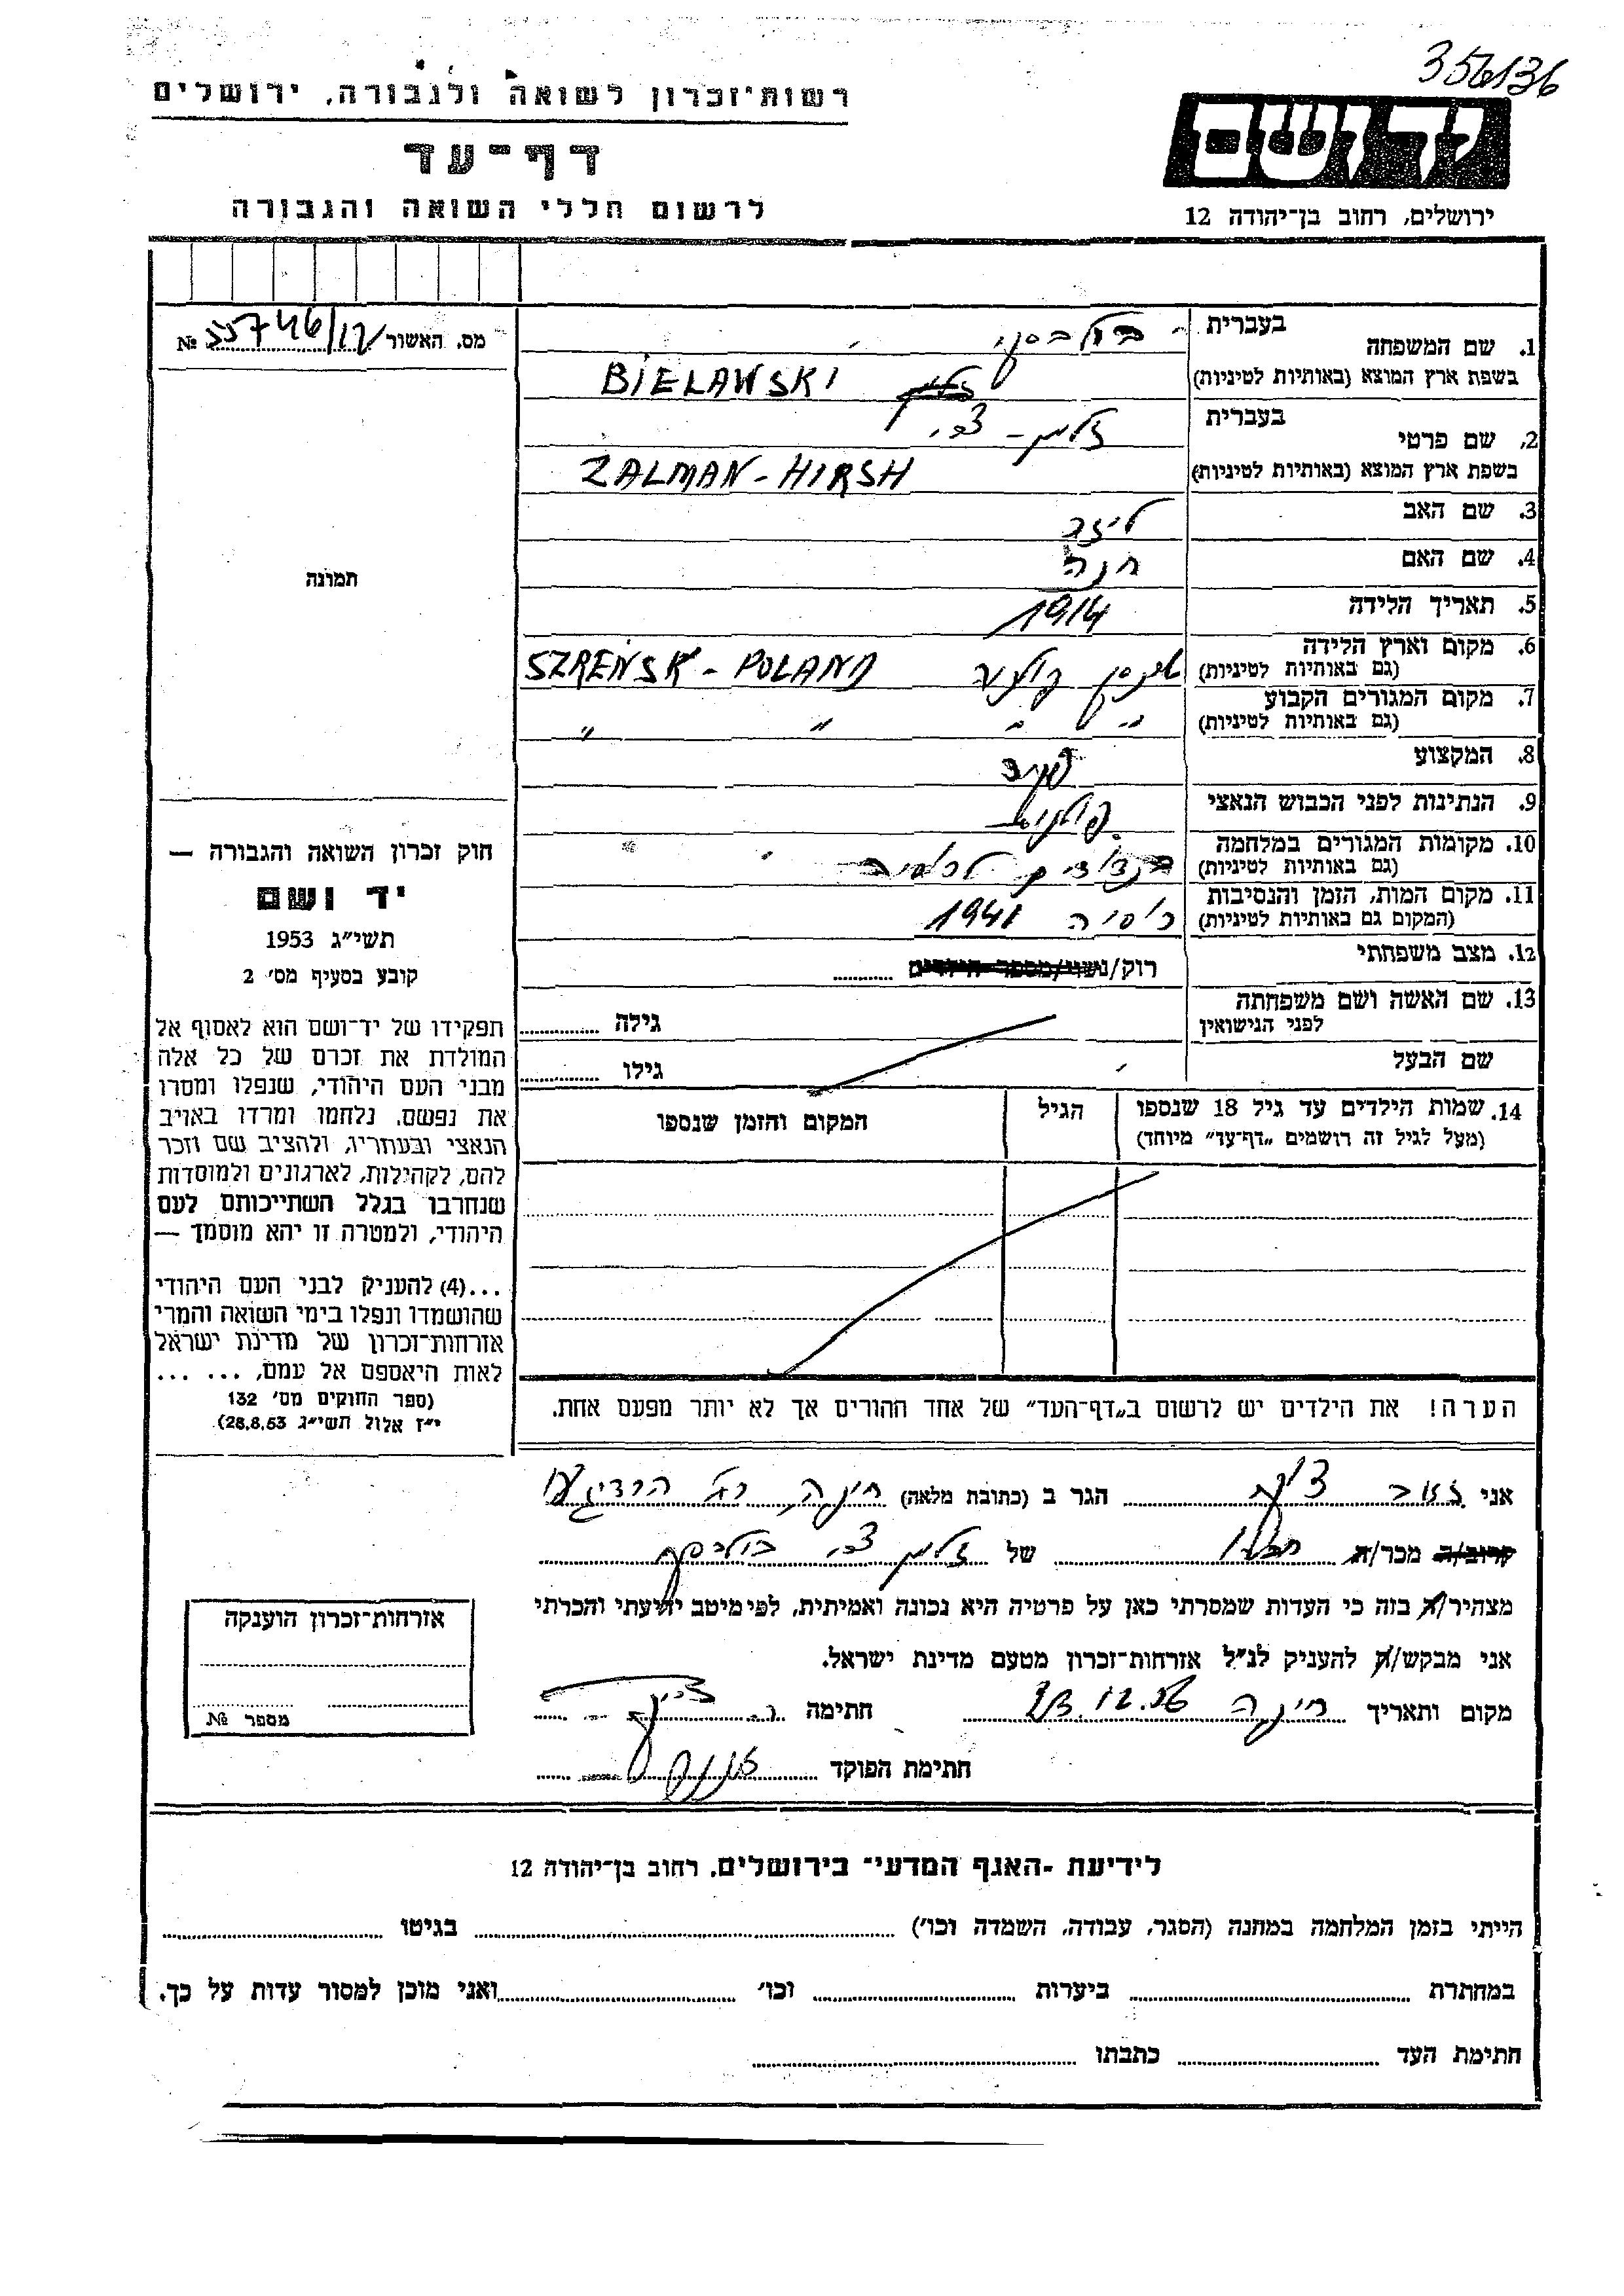 356136
רשות־זכרון לשואה ולגבורה, ירושלים
יד ושם
דף־עד
לרשום חללי השואה והגבורה
ירושלים, רחוב בן־יהודה 12
מס. האשור № 55746/12
בעברית
1. שם המשפחה
בשפת ארץ המוצא (באותיות לטיניות) BIELAWSKI
בעברית זלמן - צבי
2. שם פרטי
בשפת ארץ המוצא (באותיות לטיניות) ZALMAN - HIRSH
3. שם האב לייזר
4. שם האם חנה
5. תאריך הלידה 1914
6. מקום וארץ הלידה
(גם באותיות לטיניות) פולניה SZREŃSK - POLAND
7. מקום המגורים הקבוע
(גם באותיות לטיניות) " " " "
8. המקצוע
9. הנתינות לפני הכבוש הנאצי פולנית
10. מקומות המגורים במלחמה
(גם באותיות לטיניות)
11. מקום המות, הזמן והנסיבות
(המקום גם באותיות לטיניות) רוסיה 1941
12. מצב משפחתי רוק/נשוי/מספר הילדים
13. שם האשה ושם משפחתה
לפני הנישואין גילה
שם הבעל גילו
14. שמות הילדים עד גיל 18 שנספו
(מעל לגיל זה רושמים „דף־עד” מיוחד)
הגיל
המקום והזמן שנספו
הערה! את הילדים יש לרשום ב„דף־העד” של אחד ההורים אך לא יותר מפעם אחת.
תמונה
חוק זכרון השואה והגבורה —
יד ושם
תשי״ג 1953
קובע בסעיף מס׳ 2
תפקידו של יד־ושם הוא לאסוף אל
המולדת את זכרם של כל אלה
מבני העם היהודי, שנפלו ומסרו
את נפשם, נלחמו ומרדו באויב
הנאצי ובעוזריו, ולהציב שם וזכר
להם, לקהילות, לארגונים ולמוסדות
שנחרבו בגלל השתייכותם לעם
היהודי, ולמטרה זו יהא מוסמך —
...(4) להעניק לבני העם היהודי
שהושמדו ונפלו בימי השואה והמרי
אזרחות־זכרון של מדינת ישראל
לאות היאספם אל עמם, ... ...
(ספר החוקים מס׳ 132
י״ז אלול תשי״ג 28.8.53)
אני הגר ב (כתובת מלאה) חיפה,
קרוב/ה מכר/ה של זלמן צבי
מצהיר/ה בזה כי העדות שמסרתי כאן על פרטיה היא נכונה ואמיתית, לפי מיטב ידיעתי והכרתי
אני מבקש/ת להעניק לנ״ל אזרחות־זכרון מטעם מדינת ישראל.
מקום ותאריך חיפה 23.12.56 חתימה
חתימת הפוקד
אזרחות־זכרון הוענקה
מספר №
לידיעת ־האגף המדעי־ בירושלים, רחוב בן־יהודה 12
הייתי בזמן המלחמה במחנה (הסגר, עבודה, השמדה וכו׳) בגיטו
במחתרת ביערות וכו׳ ואני מוכן למסור עדות על כך.
חתימת העד כתבתו